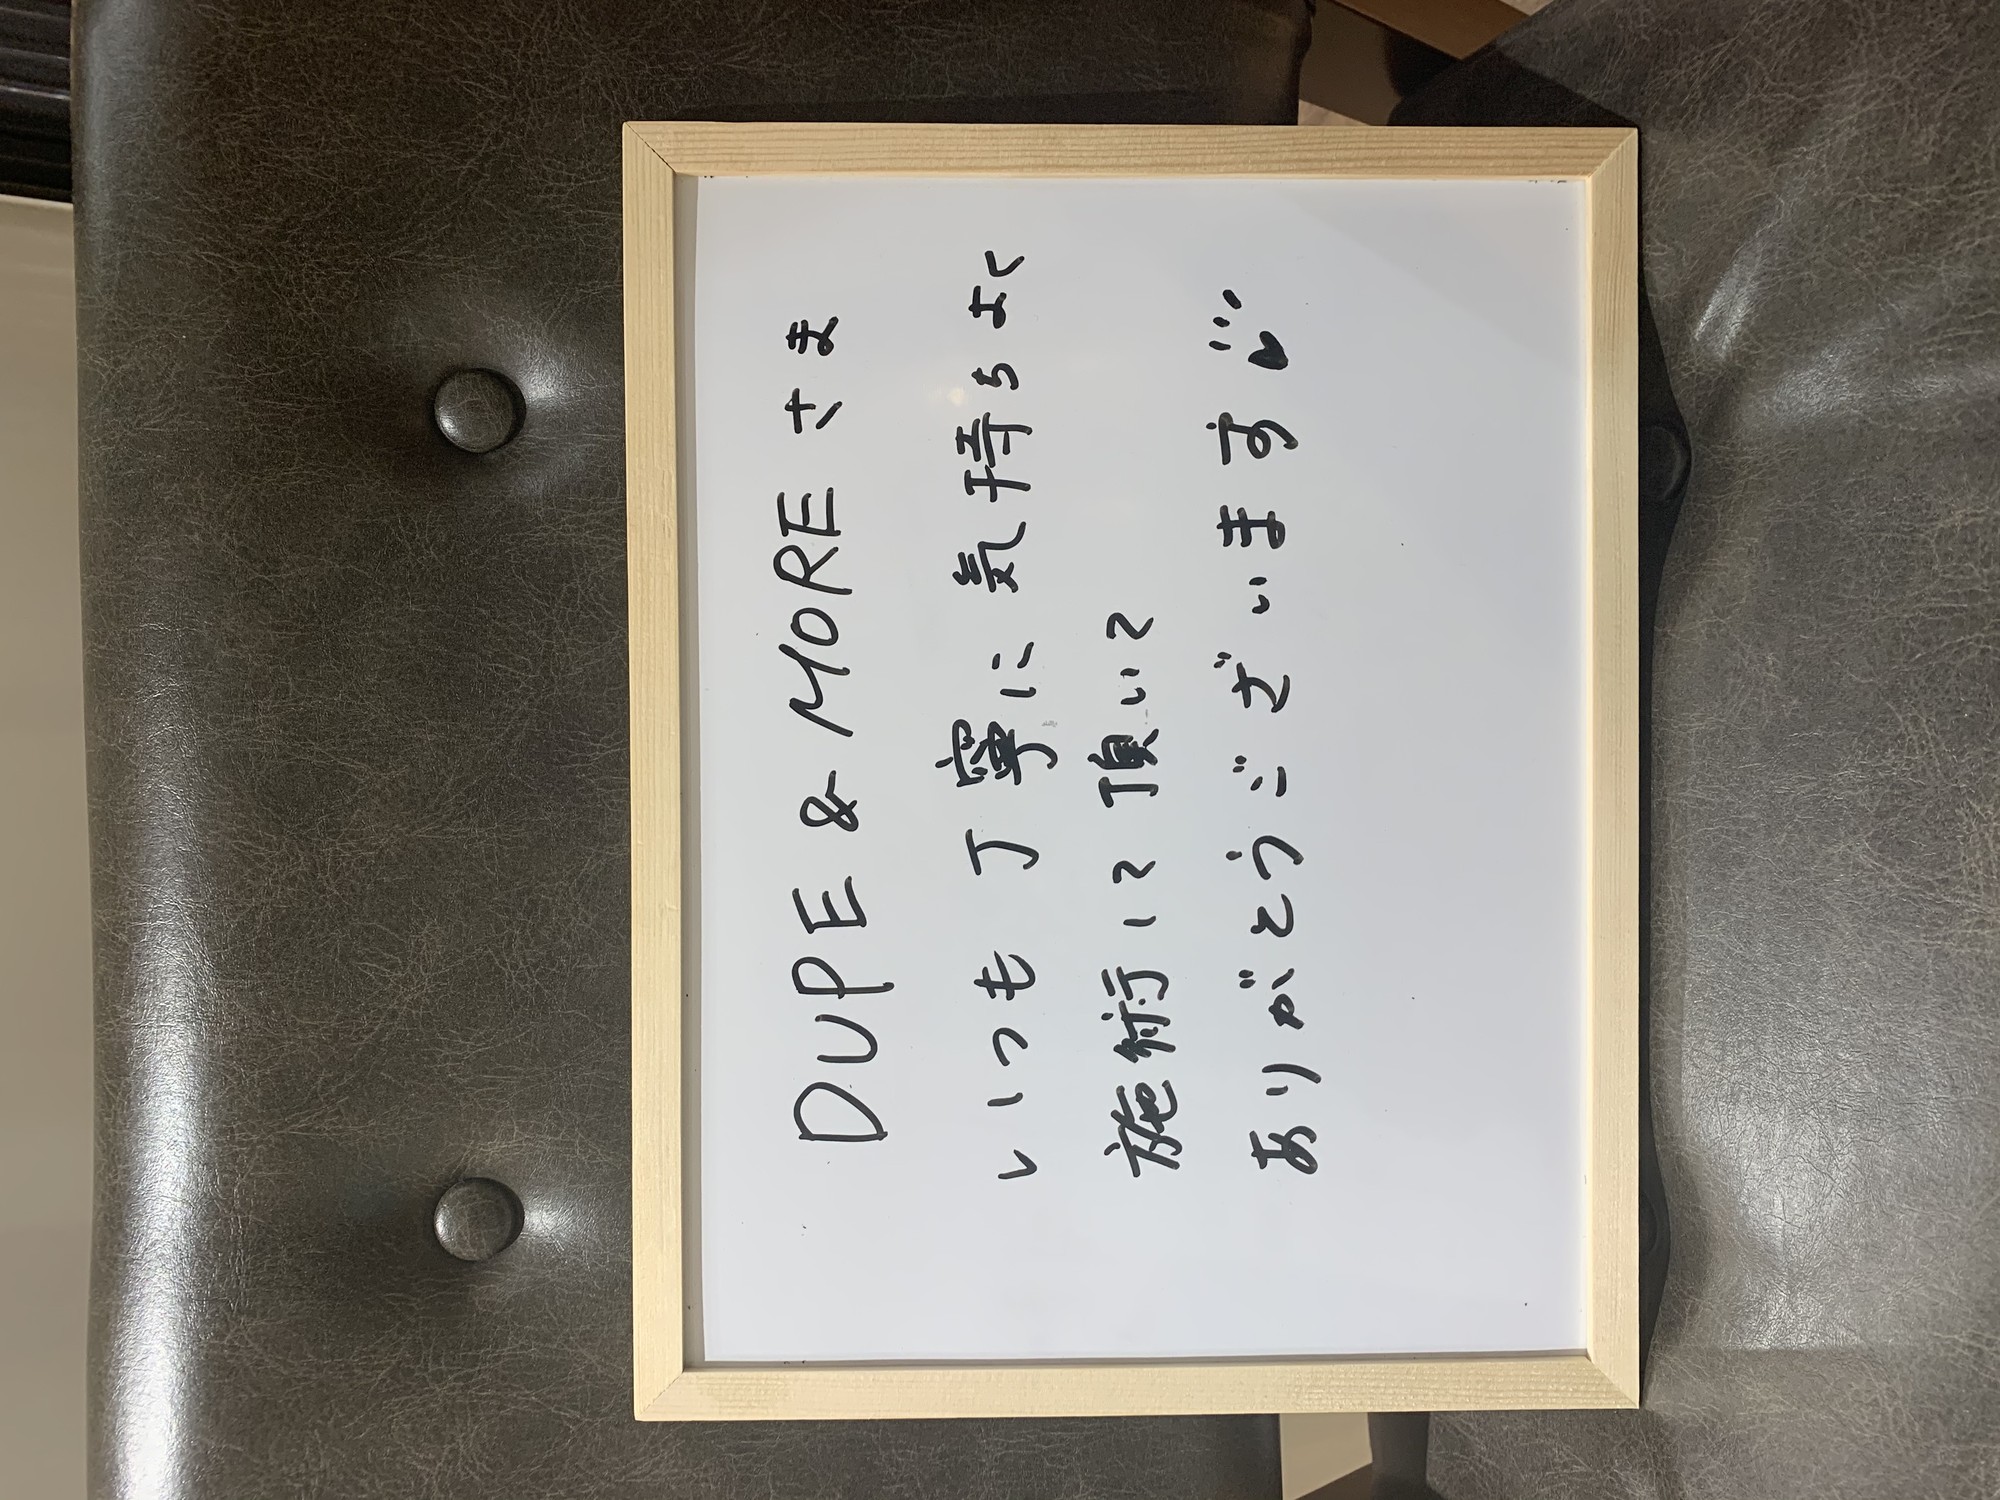 DUPE & MOREさま
いつも丁寧に気持ちよく
施術して頂いて
ありがとうございます